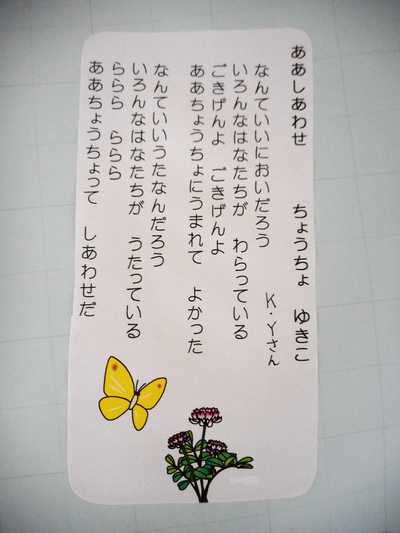 ああしあわせ　　ちょうちょ　ゆきこ
K.Yさん
なんていいにおいだろう
いろんなはなたちが　わらっている
ごきげんよ　ごきげんよ
ああちょうちょにうまれて　よかった
なんていいうたなんだろう
いろんなはなたちが　うたっている
ららら　ららら
ああちょうちょって　しあわせだ